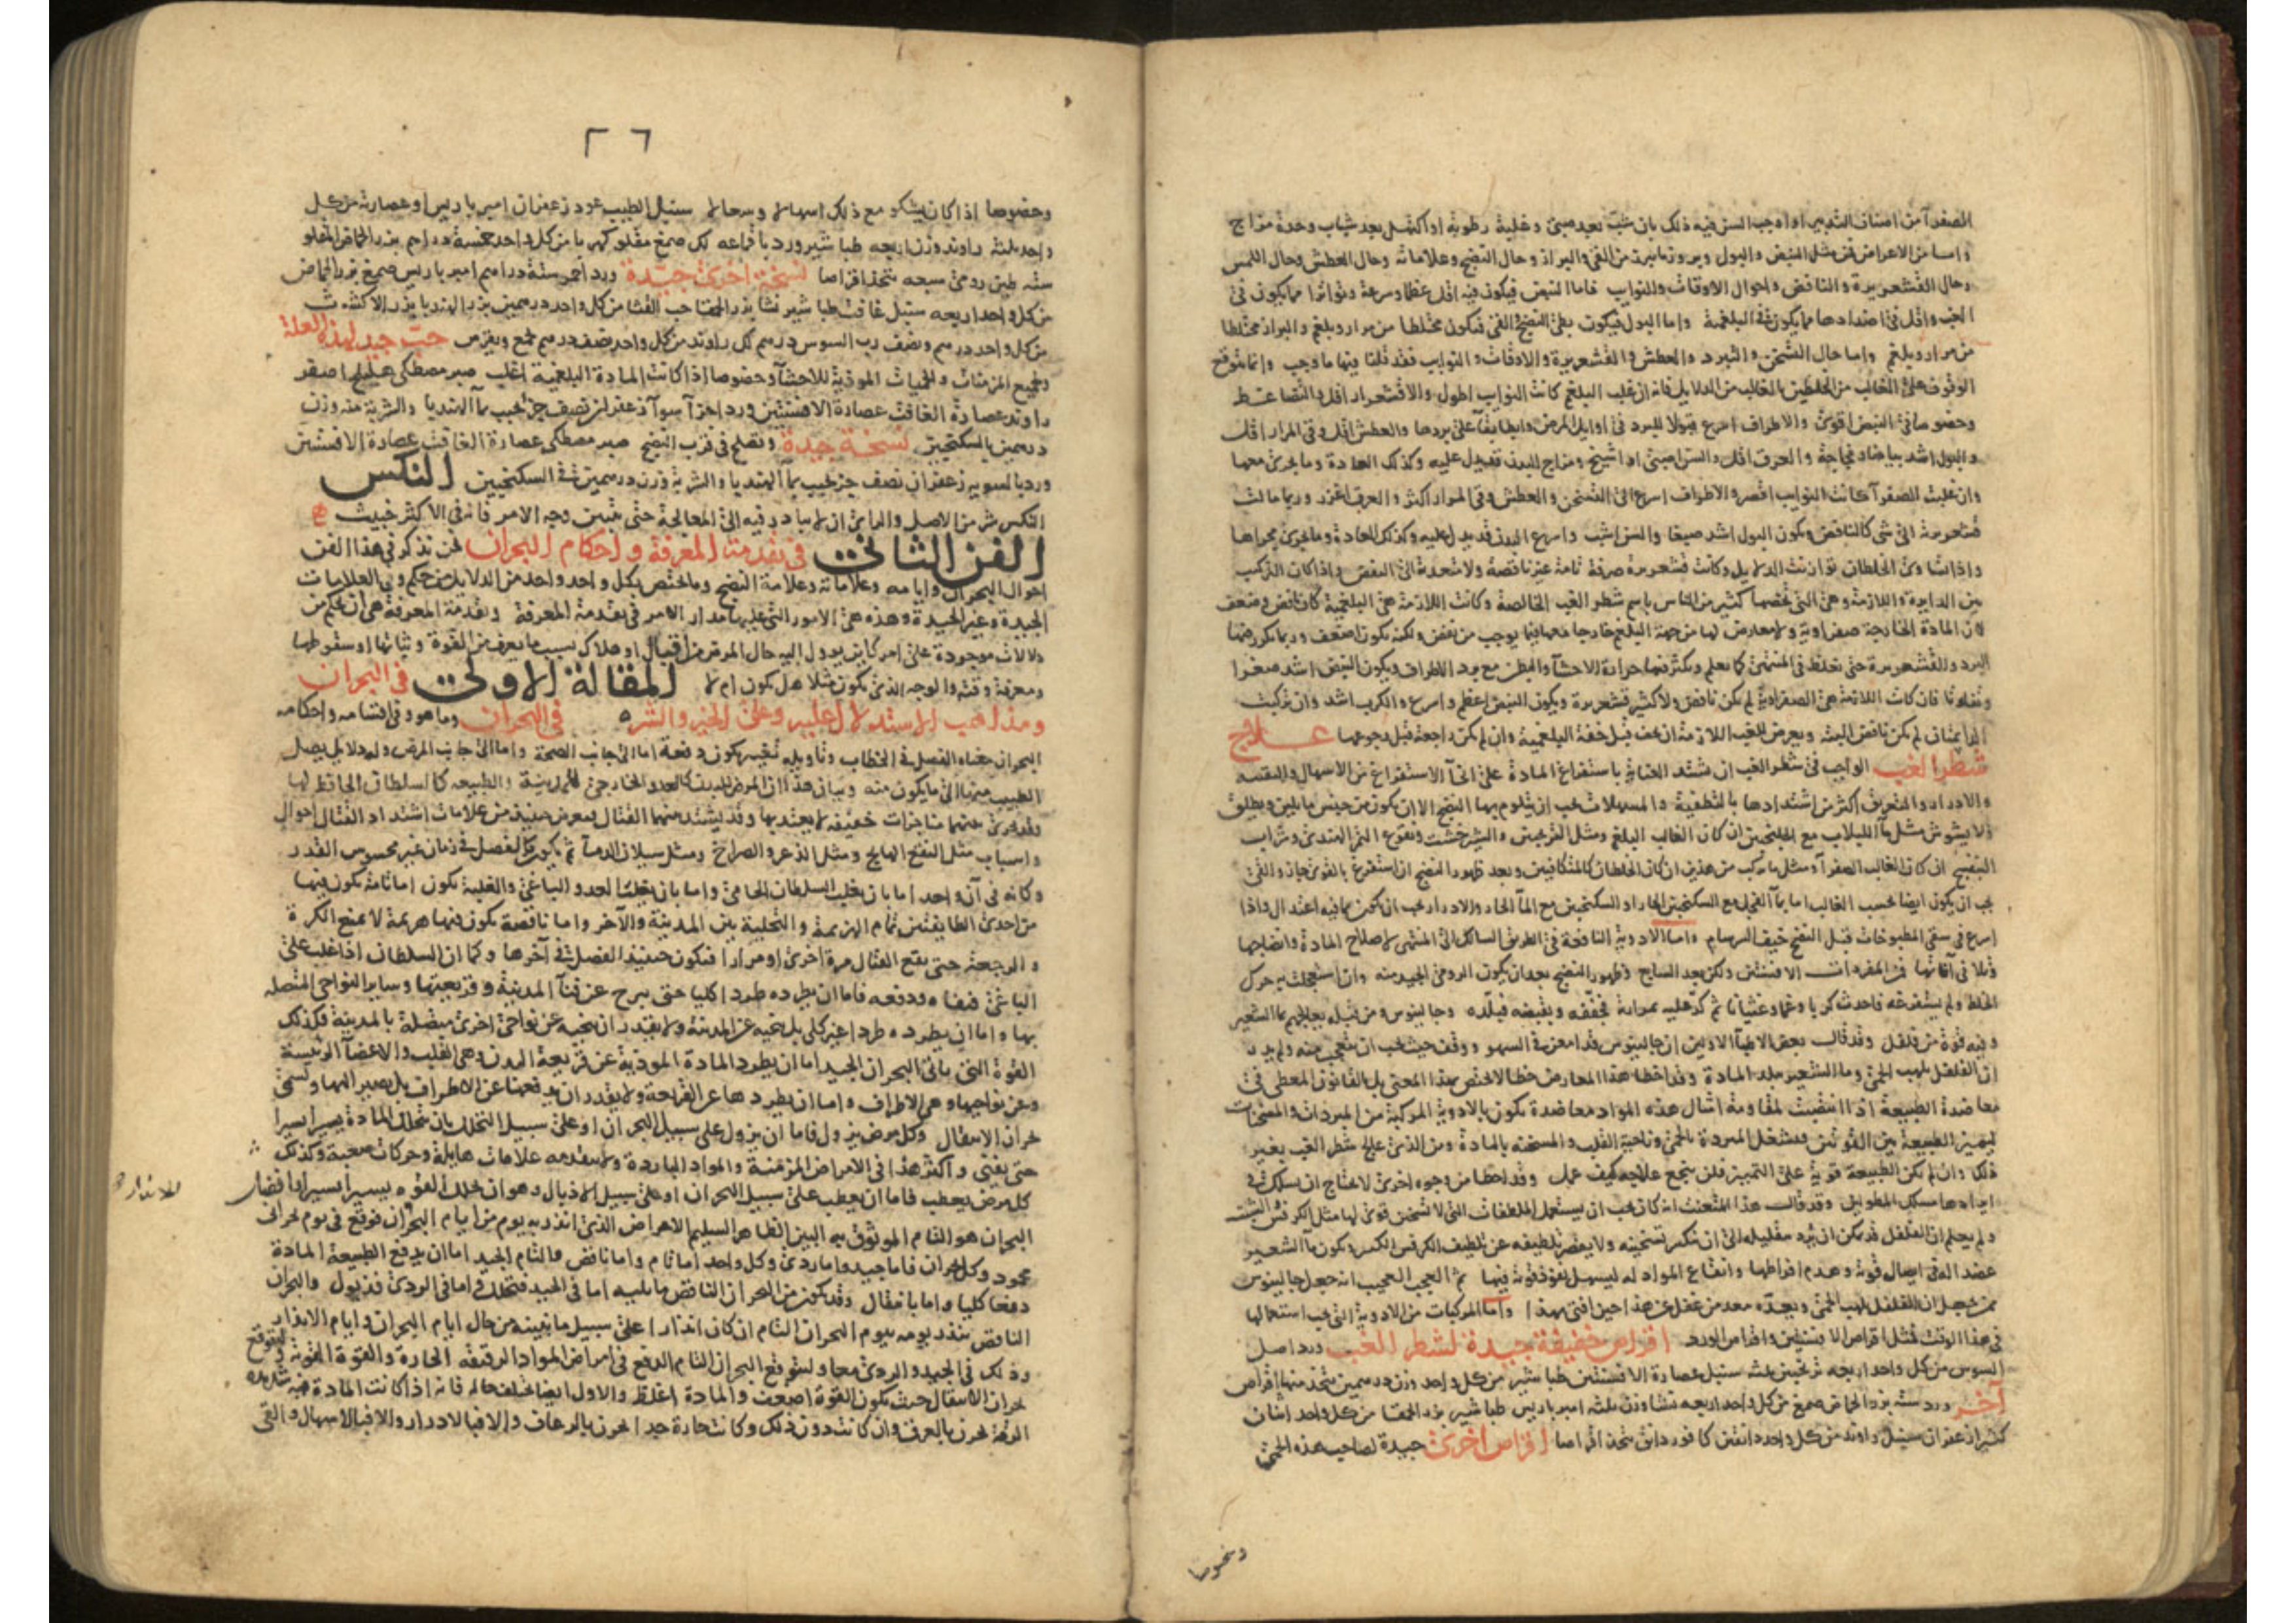 الصفرآ من اصناف التدبير او اوجب السن فيه ذلك بان شبّ بعد صبىً وغلبة رطوبة او اكتهل بعد شباب وحدة مزاج
واما من الاعراض فمن مثل النبض والبول وبروز ما يبرز من القى والبراز وحال النضج وعلاماته وحال العطش وحال اللمس
وحال القشعريرة والنافض واحوال الاوقات والنوايب فاما النبض فيكون فيه اقل عظما وسرعة وتواترا مما يكون فى
الغب واقل فى اضدادها مما يكون فى البلغمية واما البول فيكون بطئ النضج والقى فيكون مختلطا من مرار وبلغم والبراز مختلطا
من مرار وبلغم واما حال التسخن والتبرد والعطش والقشعريرة والاوقات والنوايب فقد قلنا فيها ما وجب وانما يتوقع
الوقوف على الغالب من الخلطين بالغالب من الدلايل فانه ان غلب البلغم كانت النوايب اطول والاقشعرار اقل
وخصوصا فى النبض اقوى والاطراف اسرع قبولا للبرد فى اوايل المرض وابطأ بقآ على بردها والعطش اقل وقى المرار اقل
والبول اشد بياضا وفجاجة والعرق اقل والسن صبىً او اشيخ ومزاج البدن قد يدل عليه وكذلك العادة وما يجرى معها
وان غلبت الصفرآ كانت النوايب اقصر والاطراف اسرع الى التسخن والعطش وقى المرار اكثر والعرق اغزر وربما مالت
قشعريرته الى شى كالنافض ويكون البول اشد صبغا والسن اشب واسرع البدن قد يدل عليه وكذلك العادة وما يجرى مجراها
واذا تساوى الخلطان توازنت الدلايل وكانت قشعريرة صرفة تامة غير ناقصة ولا متعدية الى النفض واذا كان التركيب
بين الدايرة واللازمة وهى التى يخصها كثير من الناس باسم شطر الغب الخالصة وكانت اللازمة هى البلغمية كان نافض وضعف
لان المادة الخارجة صفراوية ولا معارض لها من جهة البلغم خارجا معها فيما يوجب من نفض ولكنه يكون اضعف وربما تكرر فيها
البرد والقشعريرة حتى تغلظ فى المنتهى كما يعلم ويكثر فيها حرارة الاحشآ والبطن مع برد الاطراف ويكون النبض اشد صغرا
وتفاوتا فان كانت اللازمة هى الصفراوية لم يكن نافض ولا كثير قشعريرة ويكون النبض اعظم واسرع والكرب اشد وان تركبت
الدايمتان لم يكن نافض البتة ويعرض للغب اللازمة ان يخف قبل خفة البلغمية وان لم يكن راجعة قبل رجوعها علاج
شطر الغب الواجب فى شطر الغب ان تشتد العناية باستفراغ المادة على انحآ الاستفراغ من الاسهال والتقيه
والادرار والتعريق اكثر من اشتدادها بالتطفية والمسهلات يجب ان يتلوم بها النضج الا ان يكون من جنس ما يلين ويطلق
ولا يشوش مثل مآ اللبلاب مع الجلنجبين ان كان الغالب البلغم ومثل الترنجبين والشيرخشت ونقوع التمر الهندى وشراب
البنفسج ان كان الغالب الصفرآ ومثل ما يركب من هذين ان كان الخلطان كالمتكافيين وبعد ظهور النضج ان استفرغ بالقوى جاز والقى
يجب ان يكون ايضا بحسب الغالب اما بمآ الفجل مع السكنجبين الحار او السكنجبين مع المآ الحار والادرار يجب ان يكون بما فيه اعتدال واذا
اسرع فى سقى المطبوخات قبل النضج خيف البرسام واما الادوية النافعة فى الطريق السالك الى المنتهى لاصلاح المادة وانضاجها
وتلافى آفاتها فمن المفردات الافسنتين ولكن بعد السابع وظهور النضج بعد ان يكون الرومى الجيد منه وان استعجلت به حرك
الخلط ولم يستفرغه فاحدث كربا وغما وغثيانا ثم كر عليه بمرارته فجففه وبقبضه فبلّده وجالينوس ومن قبله يعالجهم بمآ الشعير
وفيه قوة من فلفل وقد قالت بعض الاطبآ الاولين ان جالينوس قد امعن فى السهو ووقف حيث يجب ان يتعجب منه ولم يدر
ان الفلفل يلهب الحمى ومآ الشعير يبلد المادة وقد اخطأ هذا المعارض خطأ لا يختص بهذا المعنى بل بالقانون المعطى فى
معاضدة الطبيعة اذا انتصبت لمقاومة امثال هذه المواد معاضدة يكون بالادوية المركبة من المبردات والمسخنات
ليميز الطبيعة بين القوتين فيشغل المبردة بالحمى وناحية القلب والمسخنه بالمادة ومن الذى عالج شطر الغب بغير
ذلك وان لم يكن الطبيعة قوية على التمييز فلن ينجع علاجه كيف عمل وقد اخطأ من وجوه اخرى لا يحتاج ان نسلك فى
ايرادها مسلك المطولين وقد قالت هذا المتعنت انه كان يجب ان يستعمل الملطفات التى لا تسخين قوى لها مثل الكرفس الشبث
ولم يعلم ان الفلفل قد يمكن ان يرد بتقليله الى ان تنكسر تسخينه ولا يقصر تلطيفه عن تلطيف الكرفس الكثير ويكون مآ الشعير
عضدا له فى ايصال قوته وعدم افراطها وانقاع المواد له ليسهل نفوذ قوته فيها ثم العجب العجيب انه جعل جالينوس
ممن يجهل ان الفلفل يلهب الحمى وبعدّه معد من غفل عن هذا حين افتى بهذا واما المركبات من الادوية التى يجب استعمالها
فى هذا الوقت فمثل اقراص الافسنتين واقراص الورد اقراص خفيفة جيدة لشطر الغب ورد اصل
السوس من كل واحد اربعه ترنجبين ثلثه سنبل عصارة الافسنتين طباشير من كل واحد وزن درهمين يتخذ منها اقراص
آخر ورد سته بزر الحماض صمغ من كل واحد اربعه نشا وزن ثلثه امبرباريس طباشير بزر الحمقا من كل واحد اثنان
كثيرا زعفران سنبل راوند من كل واحد دانقين كافور دانق يتخذ اقراصا اقراص اخرى جيدة لصاحب هذه الحمى
وخصوصا
٢٦
وخصوصا اذا كان يشكو مع ذلك اسهالا وسعالا سنبل الطيب عود زعفران امبرباريس او عصارته من كل
واحد ثلثه راوند وزن اربعه طباشير ورد باقماعه لك صمغ مقلو كهربا من كل واحد خمسة دراهم بزر الحماض المقلو
سته طين رومى سبعه يتخذ اقراصا نسخة اخرى جيّدة ورد احمر ستة دراهم امبرباريس صمغ بزر الحماض
من كل واحد اربعه سنبل غافت طباشير نشا بزر الحمقا حب القثا من كل واحد درهمين بزر الهندبا بزر الاكشوث
من كل واحد درهم ونصف رب السوس درهم لك راوند من كل واحد نصف درهم يجمع ويقرص حبّ جيد لهذه العلة
ولجميع المزمنات والحميات الموذية للاحشآ وخصوصا اذا كانت المادة البلغمية اغلب صبر مصطكى هليلج اصفر
راوند عصارة الغافت عصارة الافسنتين ورد اجزآ سوآ زعفران نصف جز يحبب بمآ الهندبا والشربة منه وزن
درهمين بالسكنجبين نسخة جيدة وتصلح فى قرب النضج صبر مصطكى عصارة الغافت عصارة الافسنتين
ورد بالسويه زعفران نصف جز يحبب بمآ الهندبا والشربة وزن درهمين فى السكنجبين النكس
النكس شر من الاصل والراى ان لا يبادر فيه الى المعالجة حتى يتبين وجه الامر فانه فى الاكثر خبيث
الفن الثانى فى تقدمة المعرفة واحكام البحران نحن نذكر فى هذا الفن
احوال البحران وايامه وعلاماته وعلامة النضج وما يختص بكل واحد واحد من الدلايل من حكم وفى العلامات
الجيدة وغير الجيدة وهذه هى الامور التى عليها مدار الامر فى تقدمة المعرفة وتقدمة المعرفة هى ان يحكم من
دلالات موجودة على امر كاين يوول اليه حال المريض من اقبال او هلاك بسبب ما يعرف من القوة وثباتها او سقوطها
ومعرفة وقته والوجه الذى يكون مثلا هل يكون ام لا المقالة الاولى فى البحران
ومذاهب الاستدلال عليه وعلى الخير والشر فى البحران وما هو وفى اقسامه واحكامه
البحران معناه الفصل فى الخطاب وتاويله تغيير يكون دفعة اما الى جانب الصحة واما الى جانب المرض وله دلايل يصل
الطبيب منها الى ما يكون منه وبيان هذا ان المرض للبدن كالعدو الخارجى للمدينة والطبيعه كالسلطان الحافظ لها
وقد يجرى بينهما مناجزات خفيفه لا يعتد بها وقد يشتد بينهما القتال فيعرض حينيذ من علامات اشتداد القتال احوال
واسباب مثل النقع الهايج ومثل الذعر والصراخ ومثل سيلان الدمآ ثم يكون الفصل فى زمان غير محسوس القدر
وكانه فى آن واحد اما بان يغلب السلطان الحامى واما بان يغلب العدو الباغى والغلبة يكون اما تامة يكون فيها
من احدى الطايفتين تمام الهزيمة والتخلية بين المدينة والآخر واما ناقصة يكون فيها هزيمة لا تمنع الكرة
والرجعة حتى يقع القتال مرة اخرى او مرارا فيكون حينيذ الفصل فى آخرها وكما ان السلطان اذا غلب على
الباغى فنفاه ودفعه فاما ان يطرده طردا كليا حتى يبرح عن فنآ المدينة وقريعتها وساير النواحى المتصله
بها واما ان يطرده طردا غير كلى بل ينحيه عن المدينة ولا يقدر ان ينحيه عن نواحى اخرى متصلة بالمدينة فكذلك
القوة التى تاتى البحران الجيد اما ان يطرد المادة الموذية عن قريعة البدن وهى القلب والاعضآ الرئيسة
وعن نواحيها وهى الاطراف واما ان يطردها عن القراحة ولا يقدر ان يدفعها عن الاطراف بل يصير اليها وتسمى
بحران الانتقال وكل مرض يزول فاما ان يزول على سبيل البحران او على سبيل التحلل بان يتحلل المادة يسيرا يسيرا
حتى يفنى واكثر هذا فى الامراض المزمنة والمواد الباردة ولا يتقدمه علامات هايلة وحركات صعبة وكذلك
كل مرض يعطب فاما ان يعطب على سبيل البحران او على سبيل الاذبال وهو ان يحلل القوه يسيرا يسيرا وافضل
البحران هو التام الموثوق به البين الظاهر السليم الاعراض الذى انذر به يوم من ايام البحران فوقع فى يوم بحرانى
محمود وكل بحران فاما جيد واما ردى وكل واحد اما تام واما ناقص والتام الجيد اما ان يدفع الطبيعة المادة
دفعا كليا واما بانتقال وقد يكون من البحران الناقص ما يليه اما فى الجيد فتحلل واما فى الردى فذبول والبحران
الناقص ينذر يومه بيوم البحران التام ان كان انذارا على سبيل ما نبينه من حال ايام البحران وايام الانذار
وذلك فى الجيد والردى معا وليتوقع البحران التام الدفع فى امراض المواد الرقيقه الحارة والقوة القوية وليتوقع
بحران الانتقال حيث يكون القوة اضعف والمادة اغلظ والاول ايضا يختلف حاله فانه اذا كانت المادة فيه شديده
الرقة بحرن بالعرق وان كانت دون ذلك وكانت حارة جدا بحرن بالرعاف والا فبالادرار والا فبالاسهال والقى